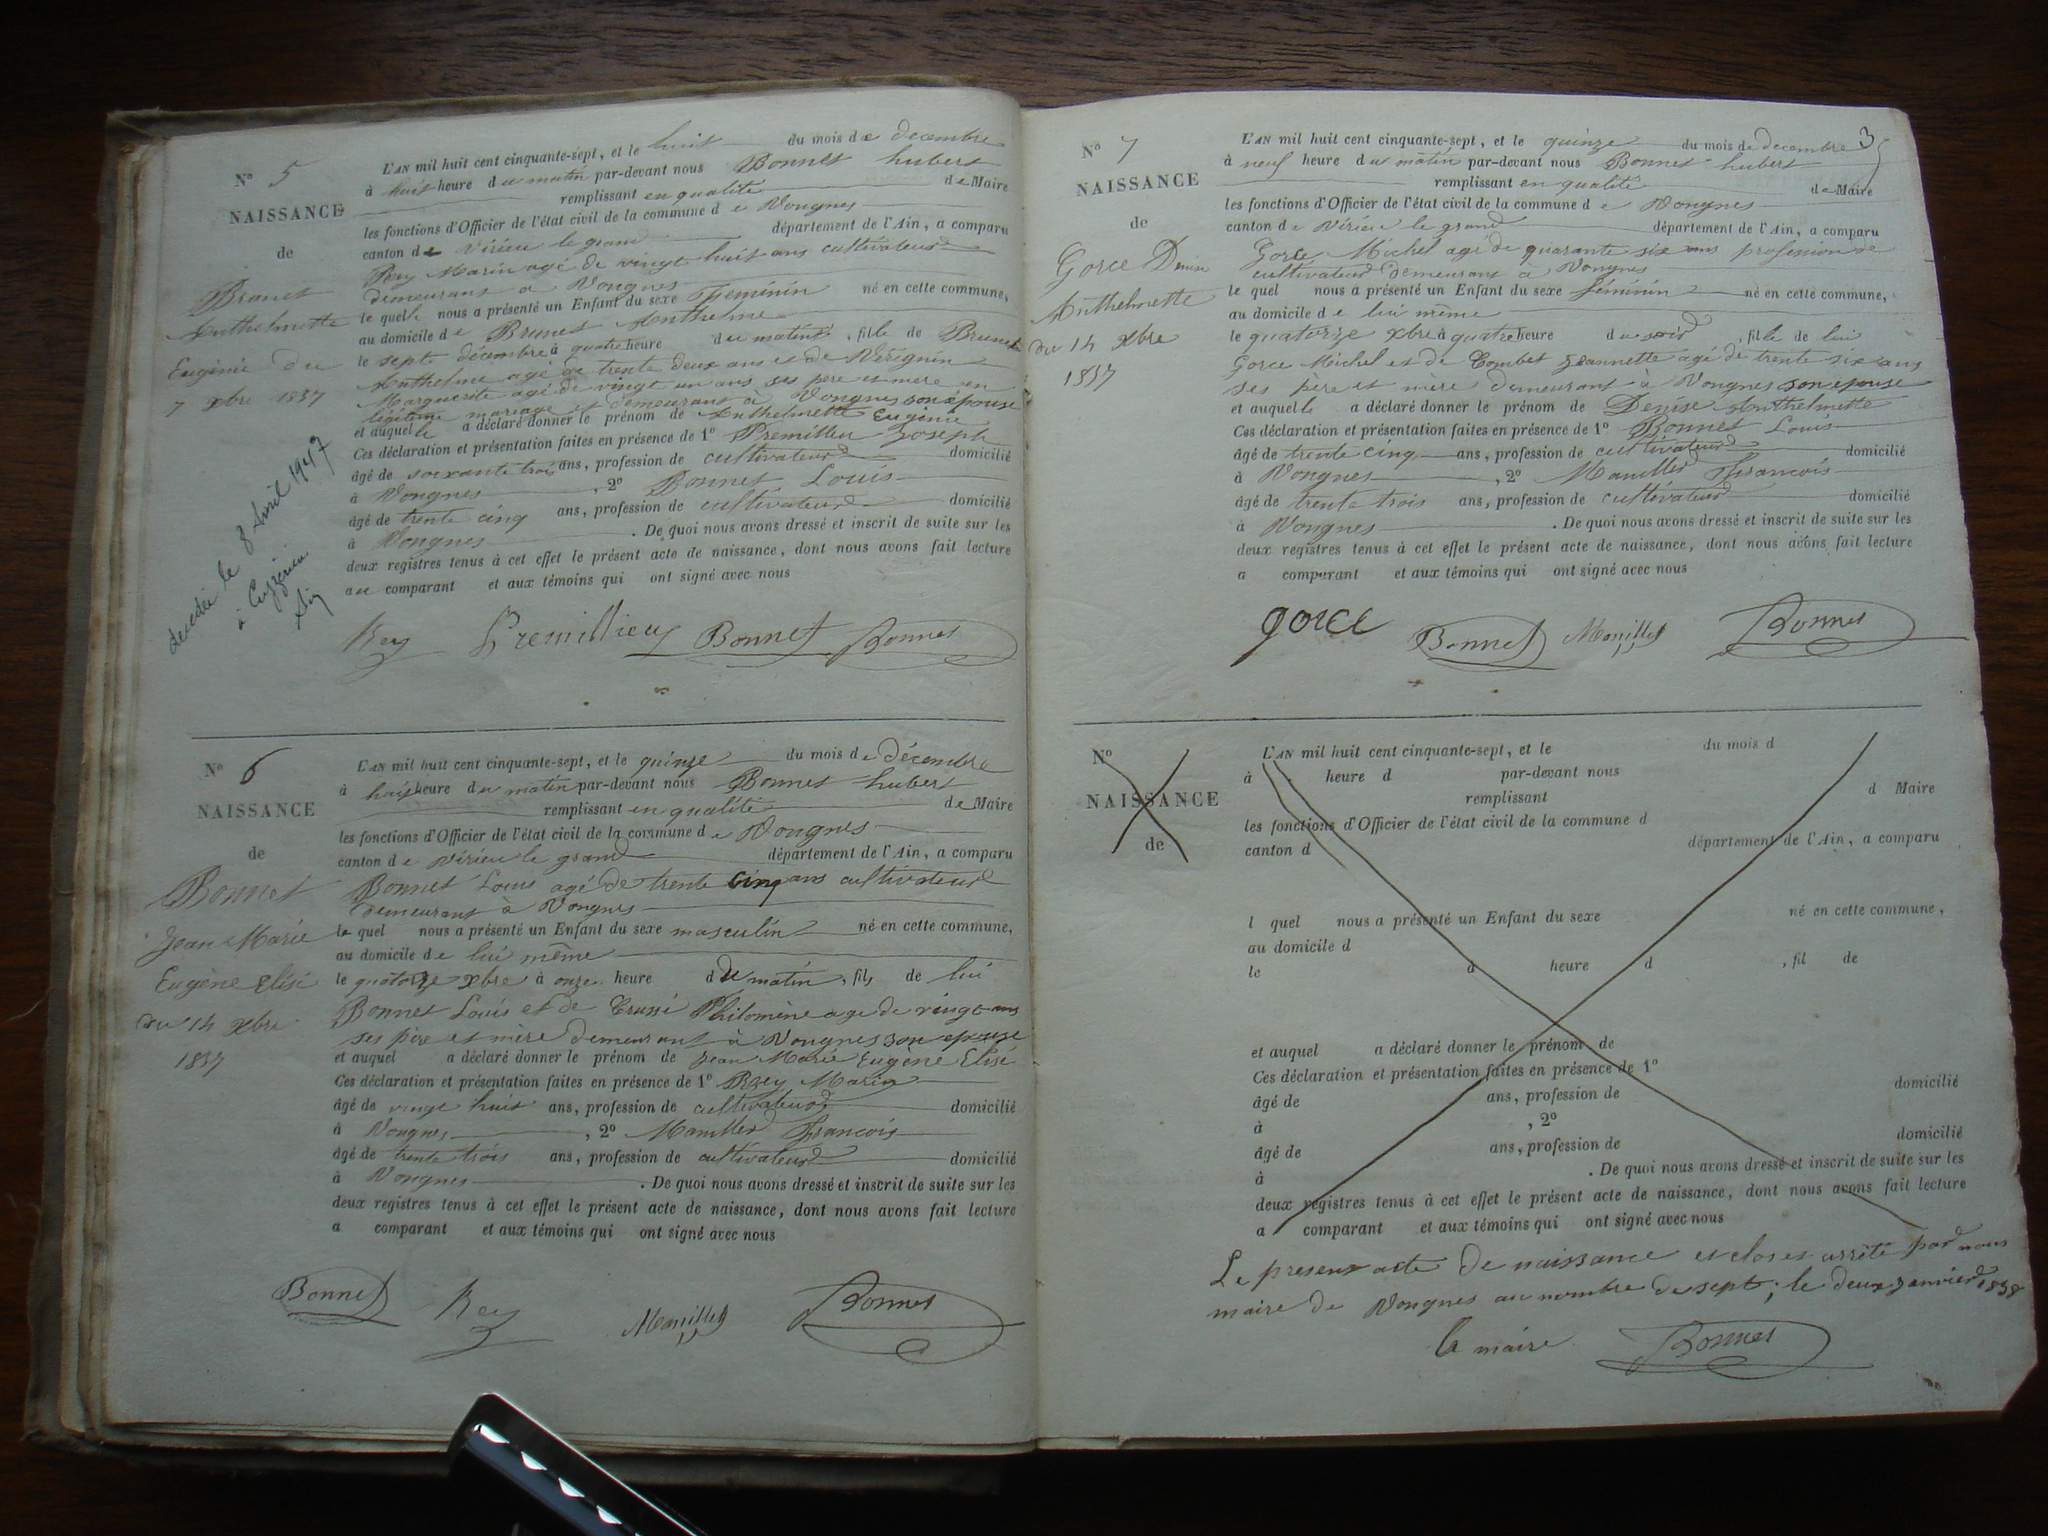 N° 5
NAISSANCE
de
Brunet
Anthelmette
Eugénie du
7 xbre 1857
décédée le 8 Avril 1947
à Cuzieu
Ain
L'AN mil huit cent cinquante-sept, et le huit du mois de decembre
à huit heure du matin par-devant nous Bonnet hubert
remplissant en qualité de Maire
les fonctions d'Officier de l'état civil de la commune de Vongnes
canton de Virieu le grand département de l'Ain, a comparu
Rey Marin agé de vingt huit ans cultivateur
demeurant à Vongnes
le quel nous a présenté un Enfant du sexe Feminin né en cette commune,
au domicile de Brunet Anthelme
le sept décembre à quatre heure du matin, fille de Brunet
Anthelme agé de trente deux ans et de
Marguerite agé de vingt un ans ses père et mère en
légitime mariage et demeurant à Vongnes son epouse
et auquel le a déclaré donner le prénom de Anthelmette Eugénie
Ces déclaration et présentation faites en présence de 1° Premillieu Joseph
âgé de soixante trois ans, profession de cultivateur domicilié
à Vongnes, 2° Bonnet Louis
âgé de trente cinq ans, profession de cultivateur domicilié
à Vongnes. De quoi nous avons dressé et inscrit de suite sur les
deux registres tenus à cet effet le présent acte de naissance, dont nous avons fait lecture
au comparant et aux témoins qui ont signé avec nous
Rey Premillieu Bonnet Bonnet
N° 6
NAISSANCE
de
Bonnet
Jean Marie
Eugène Elisé
du 14 xbre
1857
L'AN mil huit cent cinquante-sept, et le quinze du mois de décembre
à huit heure du matin par-devant nous Bonnet hubert
remplissant en qualité de Maire
les fonctions d'Officier de l'état civil de la commune de Vongnes
canton de Virieu le grand département de l'Ain, a comparu
Bonnet Louis agé de trente cinq ans cultivateur
demeurant à Vongnes
le quel nous a présenté un Enfant du sexe masculin né en cette commune,
au domicile de lui même
le quatorze xbre à onze heure du matin, fils de lui
Bonnet Louis et de Trussi Philomène age de vingt ans
ses père et mère demeurant à Vongnes son epouse
et auquel a déclaré donner le prénom de Jean Marie Eugène Elisé
Ces déclaration et présentation faites en présence de 1° Rey Marin
âgé de vingt huit ans, profession de cultivateur domicilié
à Vongnes, 2° Manillier François
âgé de trente trois ans, profession de cultivateur domicilié
à Vongnes. De quoi nous avons dressé et inscrit de suite sur les
deux registres tenus à cet effet le présent acte de naissance, dont nous avons fait lecture
a comparant et aux témoins qui ont signé avec nous
Bonnet Rey Manillier Bonnet
3
N° 7
NAISSANCE
de
Gorce Denise
Anthelmette
du 14 xbre
1857
L'AN mil huit cent cinquante-sept, et le quinze du mois de decembre
à neuf heure du matin par-devant nous Bonnet hubert
remplissant en qualité de Maire
les fonctions d'Officier de l'état civil de la commune de Vongnes
canton de Virieu le grand département de l'Ain, a comparu
Gorce Michel agé de quarante six ans profession de
cultivateur demeurant à Vongnes
le quel nous a présenté un Enfant du sexe féminin né en cette commune,
au domicile de lui même
le quatorze xbre à quatre heure du soir, fille de lui
Gorce Michel et de Combet Jeannette agé de trente six ans
ses père et mère demeurant à Vongnes son epouse
et auquel le a déclaré donner le prénom de Denise Anthelmette
Ces déclaration et présentation faites en présence de 1° Bonnet Louis
âgé de trente cinq ans, profession de cultivateur domicilié
à Vongnes, 2° Manillier François
âgé de trente trois ans, profession de cultivateur domicilié
à Vongnes. De quoi nous avons dressé et inscrit de suite sur les
deux registres tenus à cet effet le présent acte de naissance, dont nous avons fait lecture
a comparant et aux témoins qui ont signé avec nous
gorce Bonnet Manillier Bonnet
N°
NAISSANCE
de
L'AN mil huit cent cinquante-sept, et le du mois d
à heure d par-devant nous
remplissant d Maire
les fonctions d'Officier de l'état civil de la commune d
canton d département de l'Ain, a comparu
l quel nous a présenté un Enfant du sexe né en cette commune,
au domicile d
le à heure d , fil de
et auquel a déclaré donner le prénom de
Ces déclaration et présentation faites en présence de 1°
âgé de ans, profession de domicilié
à , 2°
âgé de ans, profession de domicilié
à . De quoi nous avons dressé et inscrit de suite sur les
deux registres tenus à cet effet le présent acte de naissance, dont nous avons fait lecture
a comparant et aux témoins qui ont signé avec nous
Le present acte de naissance est clos et arrêté par nous
maire de Vongnes au nombre de sept; le deux janvier 1858
le maire Bonnet